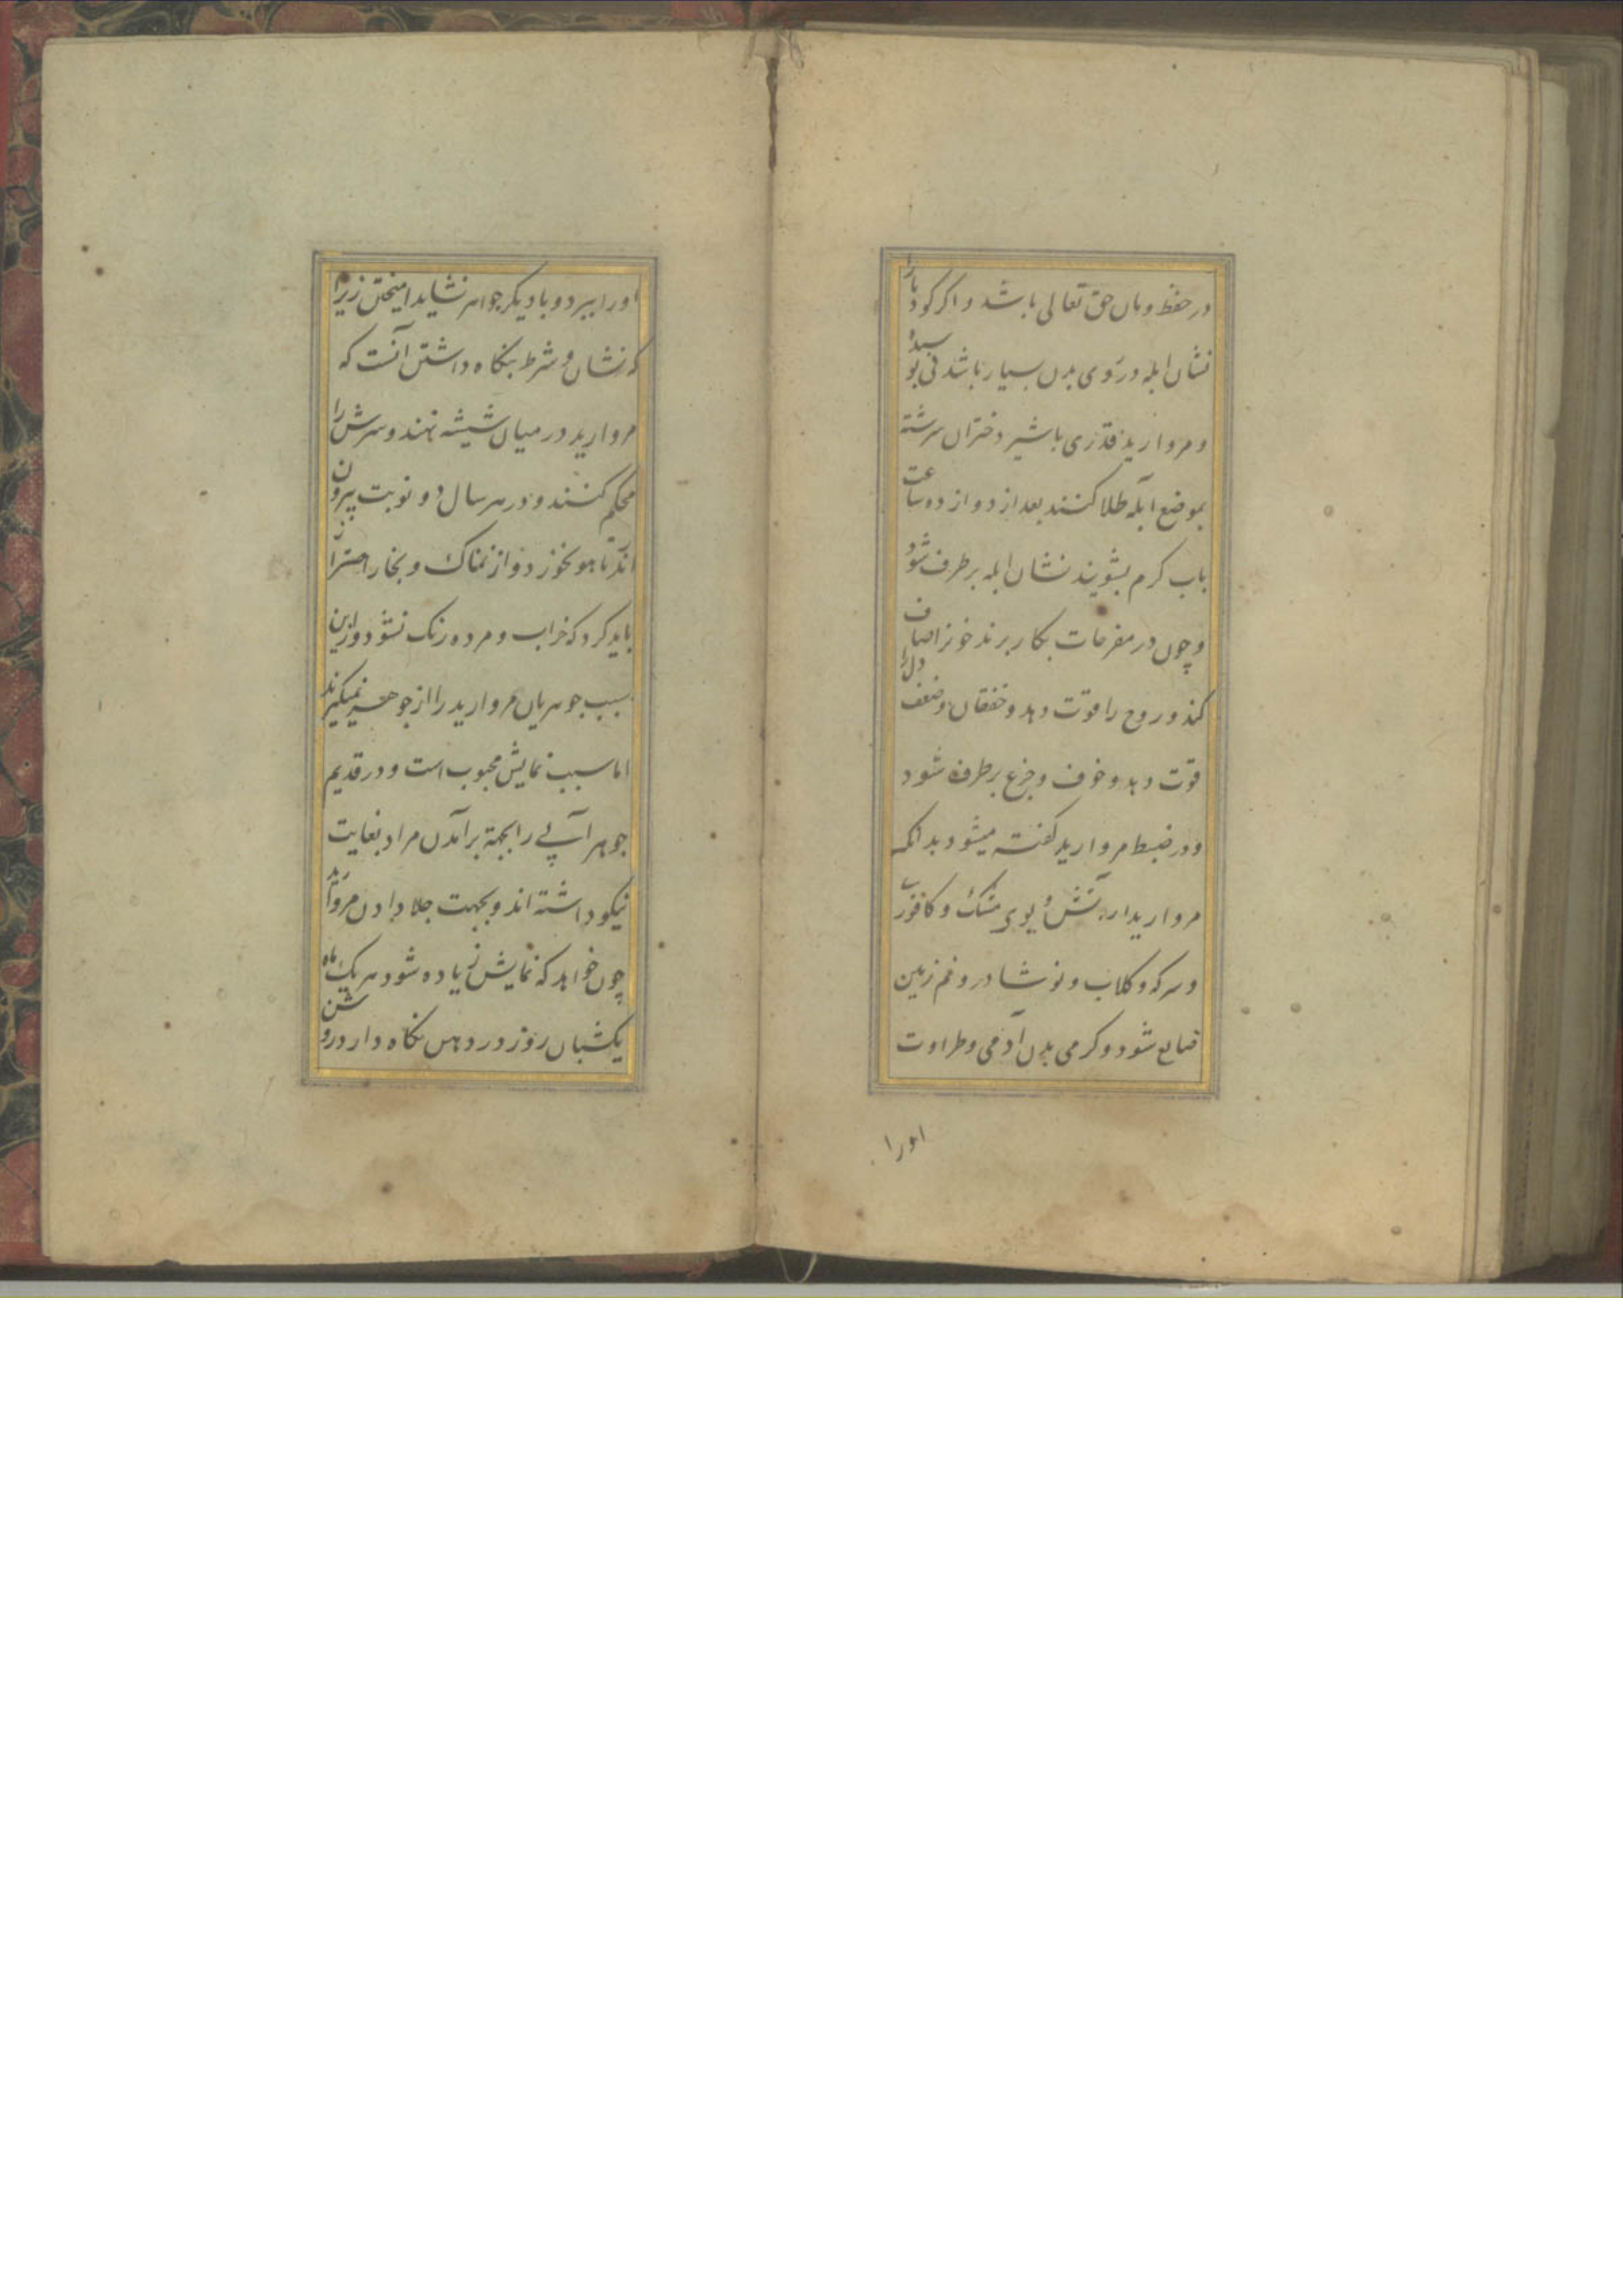 در حفظ و امان حق تعالی باشد و اکر کودکانرا
نشان ابله در روی بدن بسیار باشد نی بوسیده
و مروارید قدری باشیر دختران سرشته
بموضع ابله طلا کنند بعد از دوازده ساعت
باب کرم بشویند نشان ابله برطرف شود
و چون در مفرحات بکار برند خونرا صاف
کند و روح را قوت دهد و خفقان و ضعف دلرا
قوت دهد و خوف و جزع برطرف شود
و در ضبط مروارید کفته میشود بدانکه
مروارید از آتش و بوی مشک و کافور
و سرکه و کلاب و نوشادر و نم زمین
ضایع شود و کرمی بدن آدمی و طراوت
اورا
اورا ببرد و با دیکر جواهر نشاید امیختن زیرا
که نشان و شرط نکاه داشتن آنست که
مروارید در میان شیشه نهند و سرش را
محکم کنند و در هر سال دو نوبت بیرون
آرند تا هوا بخورد و از نمناک و بخار احتراز
باید کرد که خراب و مرده رنک نشود و ازین
سبب جوهریان مروارید را از جوهر نمیکیرند
اما سبب نمایش محبوب است و در قدیم
جوهر آبی را بجهة برآمدن مراد بغایت
نیکو داشته اند و بجهت جلا دادن مروارید
چون خواهد که نمایش زیاده شود هر یک ماه
یکشبان روز در دهن نکاه دارد روشن